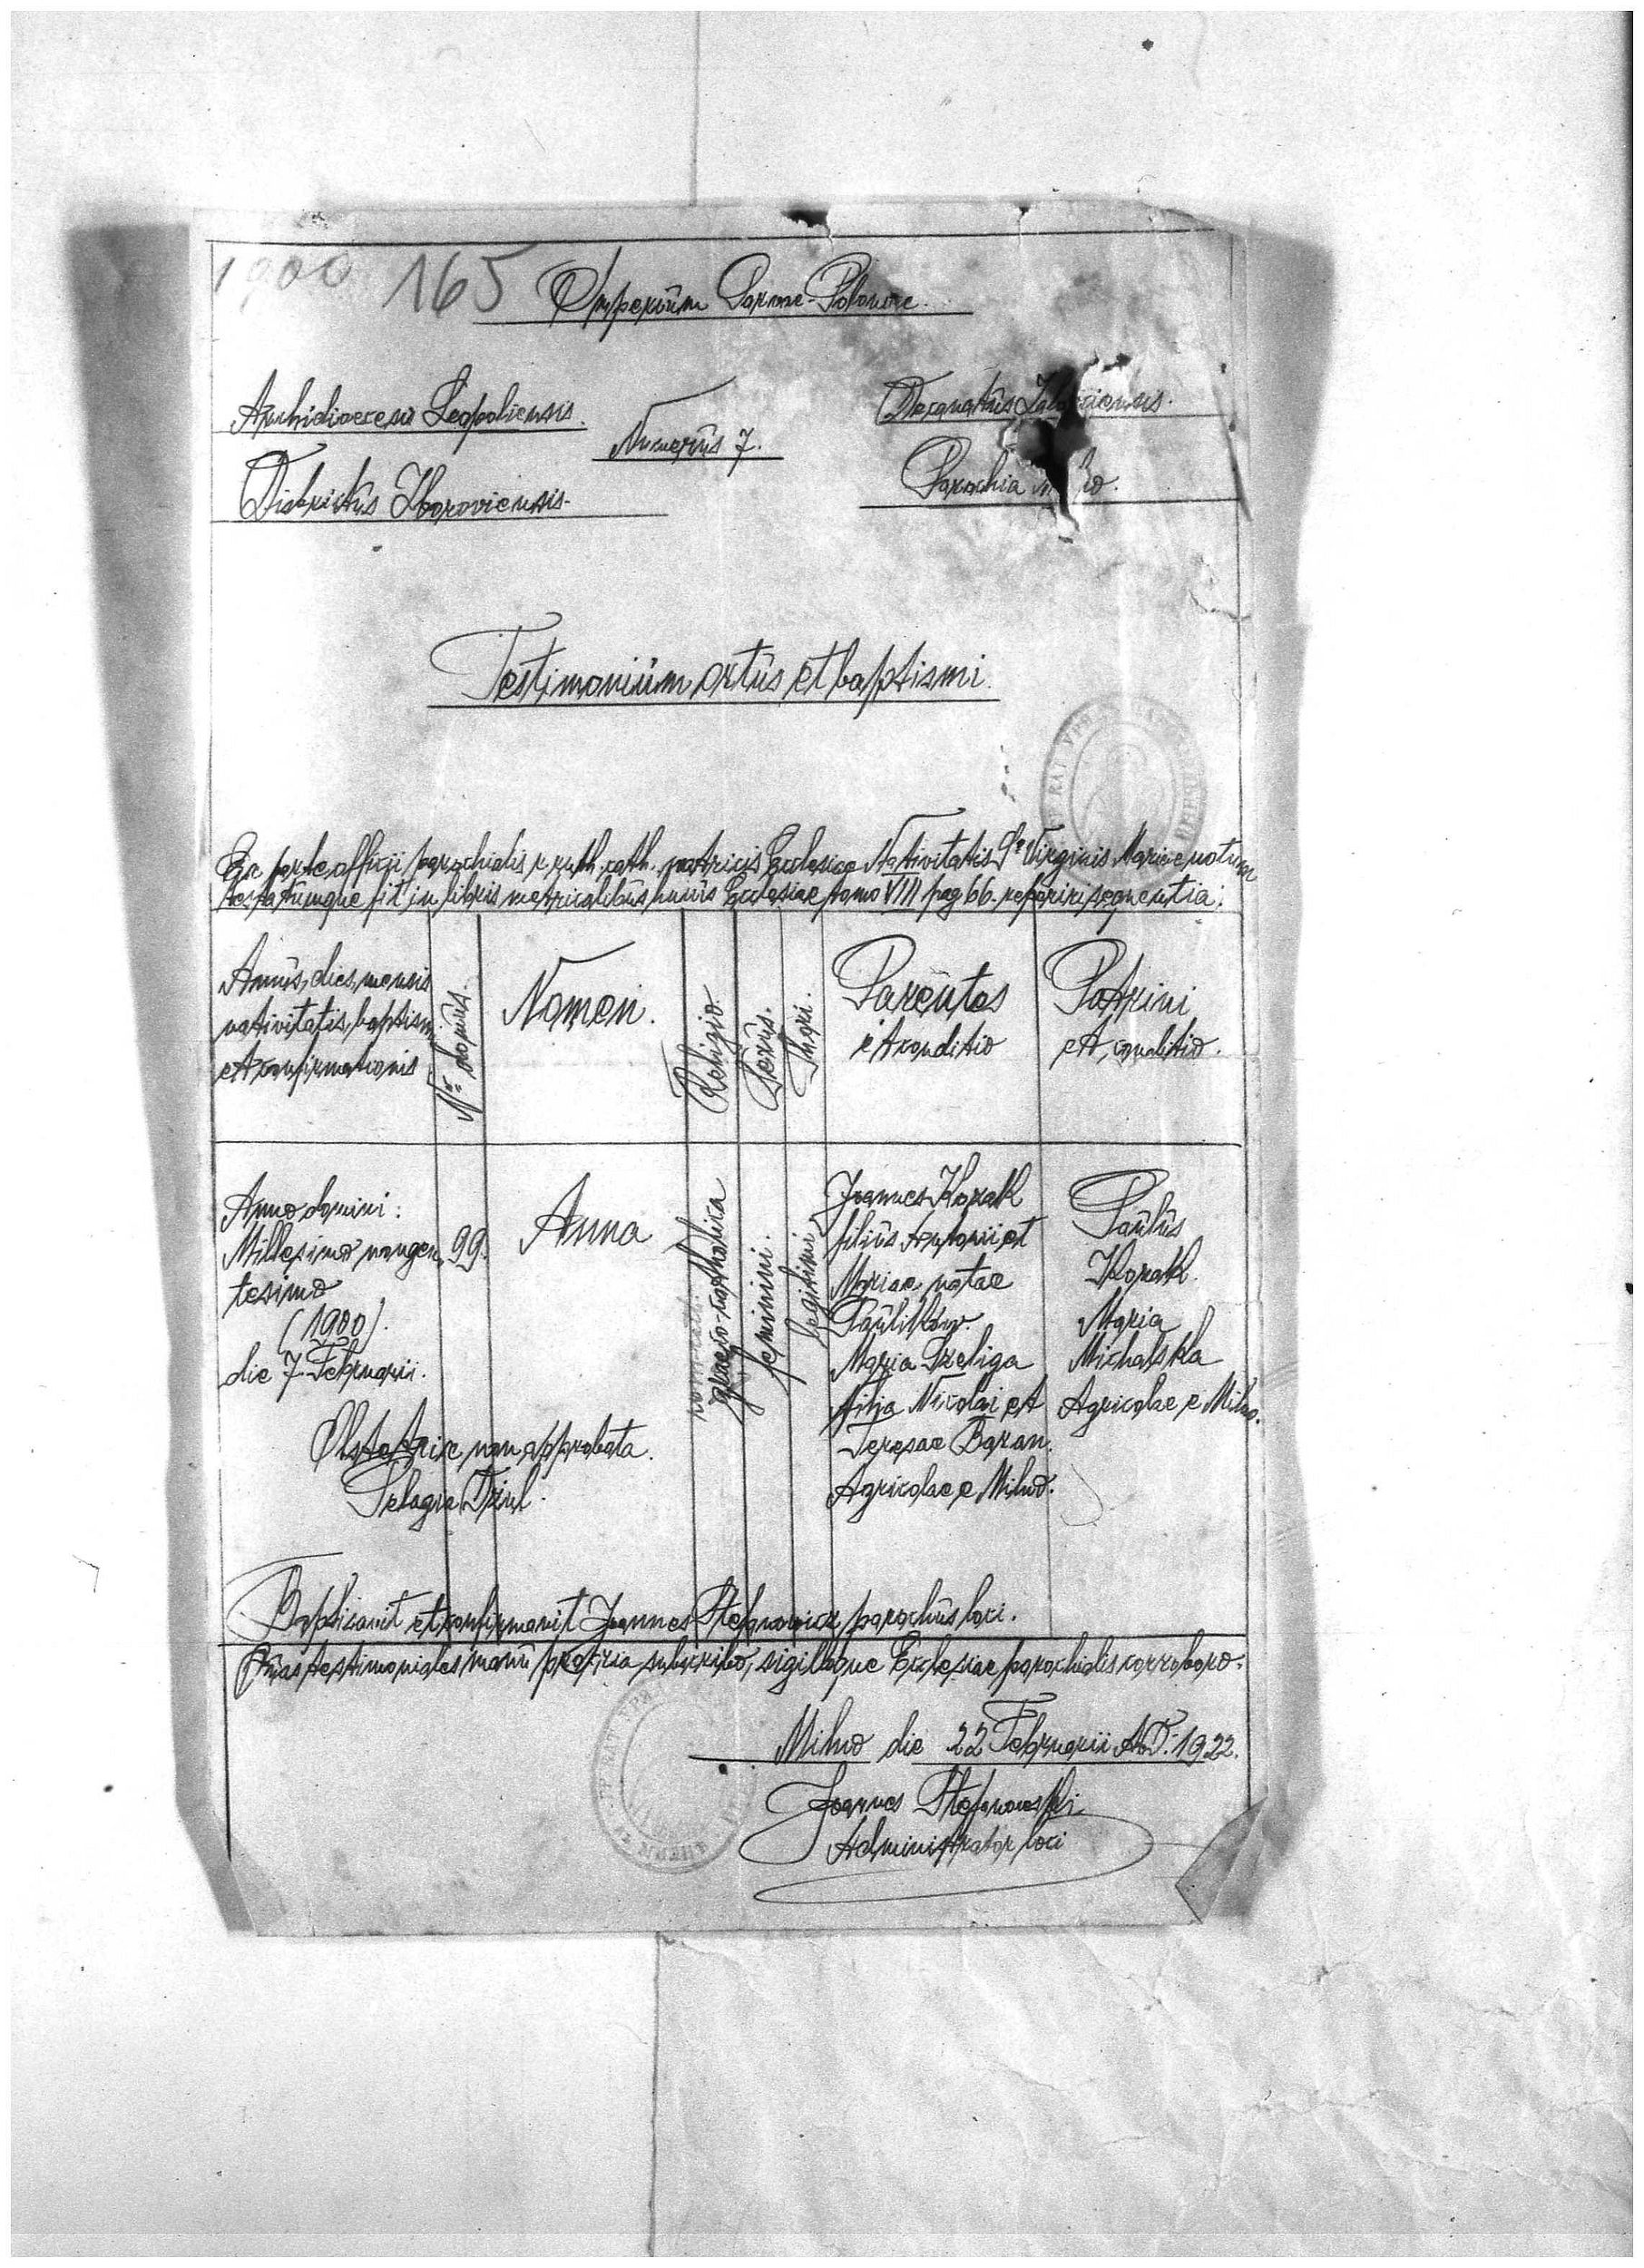 1900 165
Imperium Polonae.
Archidioecesis Leopoliensis.
Numerus 7.
Decanatus
Districtus Zboroviensis.
Parochia
Testimonium ortus et baptismi.
Ex parte officii parochialis r. ruth. cath. matricis Ecclesiae Nativitatis Virginis Mariae notum
testatumque fit in libris metricalibus huius Ecclesiae tomo VIII pag 66. reperiri sequentia:
Annus, dies, mensis
nativitatis, baptismi
et confirmationis
Nr. domus.
Nomen.
Religio.
Sexus.
Thori.
Parentes
et conditio
Patrini
et conditio.
Anno domini:
Millesimo nongen
tesimo
(1900).
die 7 Februarii.
99.
Anna
graeco-catholica
feminini.
legitimi
Joannes Korak
filius Antonii et
Mariae natae
Paulików.
Maria Szeliga
filia Nicolai et
Teresae Baran.
Agricolae e Milno.
Paulus
Korak.
Maria
Michalska
Agricolae e Milno.
Obstetrix non approbata.
Pelagia
Baptizavit et confirmavit Joannes Stefanowicz parochus loci.
Quas testimoniales manu propria subscribo, sigilloque Ecclesiae parochialis corroboro.
Milno die 22 Februarii A.D. 1922.
Joannes Stefanowski
Administrator loci